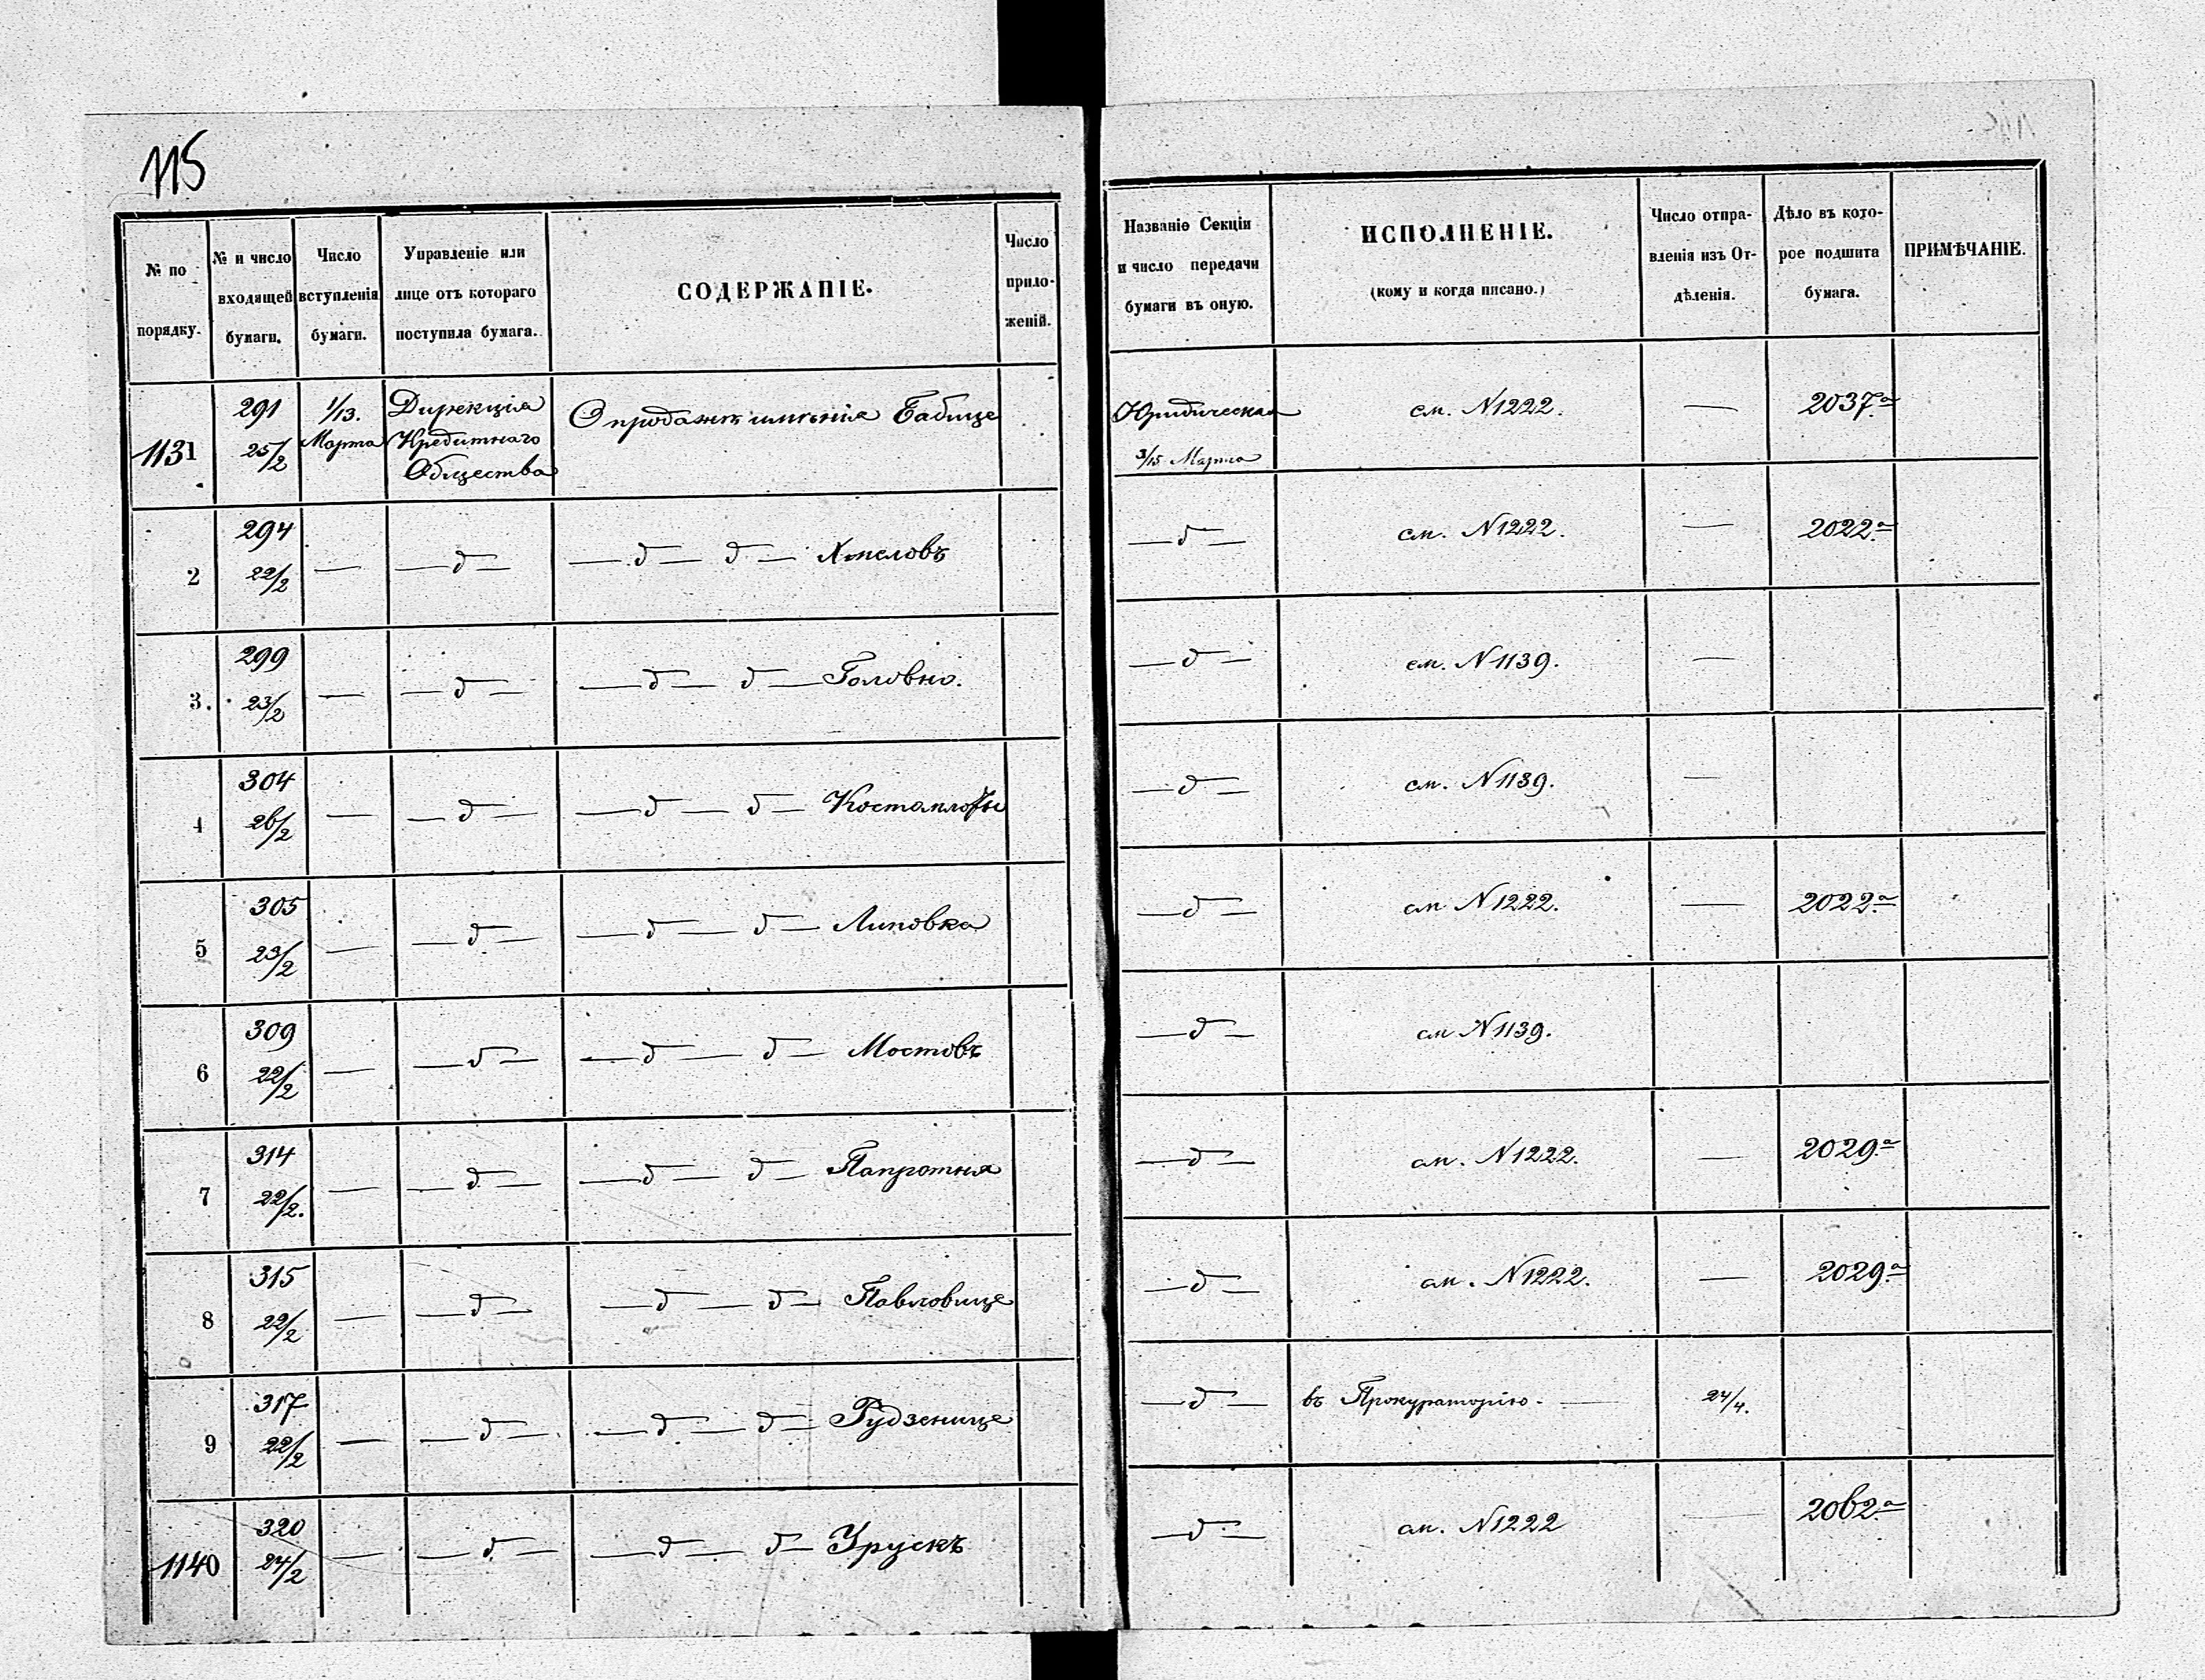 115
№ по порядку.
№ и число входящей бумаги.
Число вступленія бумаги.
Управленіе или лице отъ котораго поступила бумага.
СОДЕРЖАНІЕ.
Число приложеній.
Названіе Секціи и число передачи бумаги въ оную.
ИСПОЛНЕНІЕ.
(кому и когда писано.)
Число отправленія изъ Отдѣленія.
Дѣло въ которое подшита бумага.
ПРИМѢЧАНІЕ.
1131 291 25/2 1/13. Марта Дирекція Кредитнаго Общества О продажѣ имѣнія Бабице Юридическая 3/15 Марта см. N1222. — 2037.а
2 294 22/2 — —д— —д— д— Хмеловъ —д— см. N1222. — 2022.а
3. 299 23/2 — —д— —д— д— Головно. —д— см. N1139. —
4 304 26/2 — —д— —д— д— Костомлоты —д— см. N1139. —
5 305 23/2 — —д— —д— д— Липовка —д— см N1222. — 2022.а
6 309 22/2 — —д— —д— д— Мостовъ —д— см N1139.
7 314 22/2. — —д— —д— д— Папротня —д— см. N1222. — 2029а
8 315 22/2 — —д— —д— д— Павловице —д— см. N1222. — 2029.а
9 317 22/2 — —д— —д— д— Рудзенице —д— въ Прокураторію. — 24/4.
1140 320 24/2 — —д— —д— д— Урускъ —д— см. N1222 — 2062.а